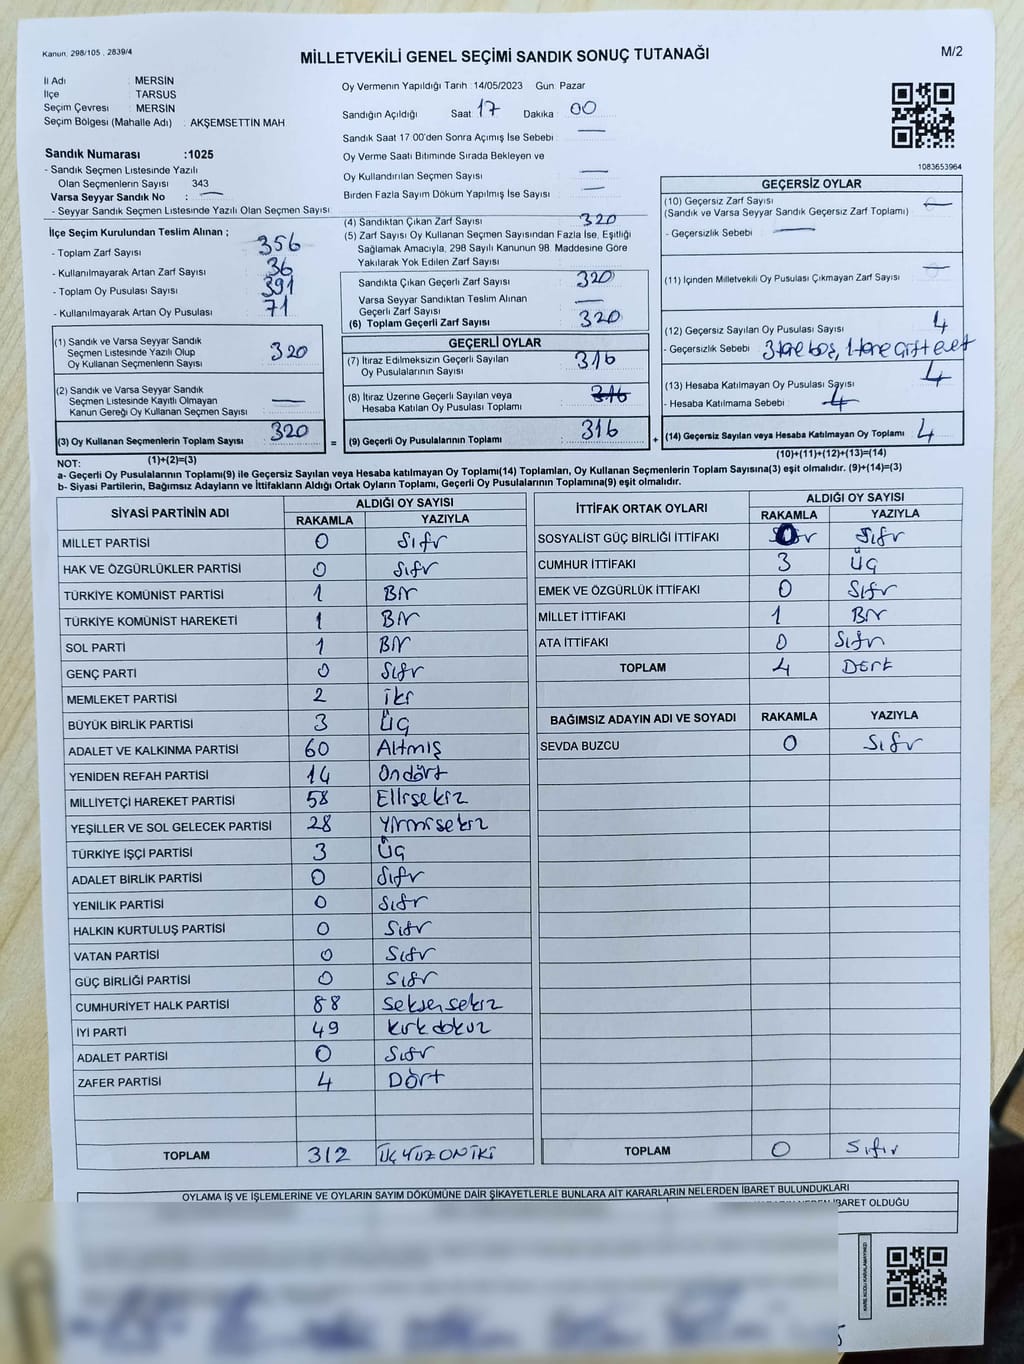 Kanun. 298/105 . 2839/4
MİLLETVEKİLİ GENEL SEÇİMİ SANDIK SONUÇ TUTANAĞI
M/2
İl Adı : MERSİN
İlçe : TARSUS
Seçim Çevresi : MERSİN
Seçim Bölgesi (Mahalle Adı) : AKŞEMSETTİN MAH
Sandık Numarası :1025
- Sandık Seçmen Listesinde Yazılı
Olan Seçmenlerin Sayısı 343
Varsa Seyyar Sandık No : —
- Seyyar Sandık Seçmen Listesinde Yazılı Olan Seçmen Sayısı
İlçe Seçim Kurulundan Teslim Alınan ;
- Toplam Zarf Sayısı 356
- Kullanılmayarak Artan Zarf Sayısı 36
- Toplam Oy Pusulası Sayısı 391
- Kullanılmayarak Artan Oy Pusulası 71
(1) Sandık ve Varsa Seyyar Sandık
Seçmen Listesinde Yazılı Olup
Oy Kullanan Seçmenlerin Sayısı 320
(2) Sandık ve Varsa Seyyar Sandık
Seçmen Listesinde Kayıtlı Olmayan
Kanun Gereği Oy Kullanan Seçmen Sayısı —
(3) Oy Kullanan Seçmenlerin Toplam Sayısı 320
(1)+(2)=(3)
Oy Vermenin Yapıldığı Tarih : 14/05/2023 Gün: Pazar
Sandığın Açıldığı Saat 17 Dakika 00
Sandık Saat 17 00'den Sonra Açımış İse Sebebi : —
Oy Verme Saati Bitiminde Sırada Bekleyen ve
Oy Kullandırılan Seçmen Sayısı —
Birden Fazla Sayım Döküm Yapılmış İse Sayısı —
(4) Sandıktan Çıkan Zarf Sayısı 320
(5) Zarf Sayısı Oy Kullanan Seçmen Sayısından Fazla İse, Eşitliği
Sağlamak Amacıyla, 298 Sayılı Kanunun 98. Maddesine Göre
Yakılarak Yok Edilen Zarf Sayısı
Sandıkta Çıkan Geçerli Zarf Sayısı 320
Varsa Seyyar Sandıktan Teslim Alınan
Geçerli Zarf Sayısı —
(6) Toplam Geçerli Zarf Sayısı 320
GEÇERLİ OYLAR
(7) İtiraz Edilmeksizin Geçerli Sayılan
Oy Pusulalarının Sayısı 316
(8) İtiraz Üzerine Geçerli Sayılan veya
Hesaba Katılan Oy Pusulası Toplamı 316
= (9) Geçerli Oy Pusulalarının Toplamı 316
1083653964
GEÇERSİZ OYLAR
(10) Geçersiz Zarf Sayısı
(Sandık ve Varsa Seyyar Sandık Geçersiz Zarf Toplamı)
- Geçersizlik Sebebi : —
(11) İçinden Milletvekili Oy Pusulası Çıkmayan Zarf Sayısı
(12) Geçersiz Sayılan Oy Pusulası Sayısı 4
- Geçersizlik Sebebi : 3 tane boş, 1 tane çift evet
(13) Hesaba Katılmayan Oy Pusulası Sayısı 4
- Hesaba Katılmama Sebebi : 4
+ (14) Geçersiz Sayılan veya Hesaba Katılmayan Oy Toplamı 4
(10)+(11)+(12)+(13)=(14)
NOT:
a- Geçerli Oy Pusulasının Toplamı(9) ile Geçersiz Sayılan veya Hesaba katılmayan Oy Toplamı(14) Toplamları, Oy Kullanan Seçmenlerin Toplam Sayısına(3) eşit olmalıdır. (9)+(14)=(3)
b- Siyasi Partilerin, Bağımsız Adayların ve İttifakların Aldığı Ortak Oyların Toplamı, Geçerli Oy Pusulalarının Toplamına(9) eşit olmalıdır.
SİYASİ PARTİNİN ADI ALDIĞI OY SAYISI
RAKAMLA YAZIYLA
MİLLET PARTİSİ 0 Sıfır
HAK VE ÖZGÜRLÜKLER PARTİSİ 0 Sıfır
TÜRKİYE KOMÜNİST PARTİSİ 1 Bir
TÜRKİYE KOMÜNİST HAREKETİ 1 Bir
SOL PARTİ 1 Bir
GENÇ PARTİ 0 Sıfır
MEMLEKET PARTİSİ 2 iki
BÜYÜK BİRLİK PARTİSİ 3 Üç
ADALET VE KALKINMA PARTİSİ 60 Altmış
YENİDEN REFAH PARTİSİ 14 Ondört
MİLLİYETÇİ HAREKET PARTİSİ 58 Ellisekiz
YEŞİLLER VE SOL GELECEK PARTİSİ 28 Yirmisekiz
TÜRKİYE İŞÇİ PARTİSİ 3 Üç
ADALET BİRLİK PARTİSİ 0 Sıfır
YENİLİK PARTİSİ 0 Sıfır
HALKIN KURTULUŞ PARTİSİ 0 Sıfır
VATAN PARTİSİ 0 Sıfır
GÜÇ BİRLİĞİ PARTİSİ 0 Sıfır
CUMHURİYET HALK PARTİSİ 88 Seksensekiz
İYİ PARTİ 49 Kırkdokuz
ADALET PARTİSİ 0 Sıfır
ZAFER PARTİSİ 4 Dört
TOPLAM 312 ÜÇYÜZONİKİ
İTTİFAK ORTAK OYLARI ALDIĞI OY SAYISI
RAKAMLA YAZIYLA
SOSYALİST GÜÇ BİRLİĞİ İTTİFAKI 0 Sıfır
CUMHUR İTTİFAKI 3 Üç
EMEK VE ÖZGÜRLÜK İTTİFAKI 0 Sıfır
MİLLET İTTİFAKI 1 Bir
ATA İTTİFAKI 0 Sıfır
TOPLAM 4 Dört
BAĞIMSIZ ADAYIN ADI VE SOYADI RAKAMLA YAZIYLA
SEVDA BUZCU 0 Sıfır
TOPLAM 0 Sıfır
OYLAMA İŞ VE İŞLEMLERİNE VE OYLARIN SAYIM DÖKÜMÜNE DAİR ŞİKAYETLERLE BUNLARA AİT KARARLARIN NELERDEN İBARET BULUNDUKLARI
İBARET OLDUĞU